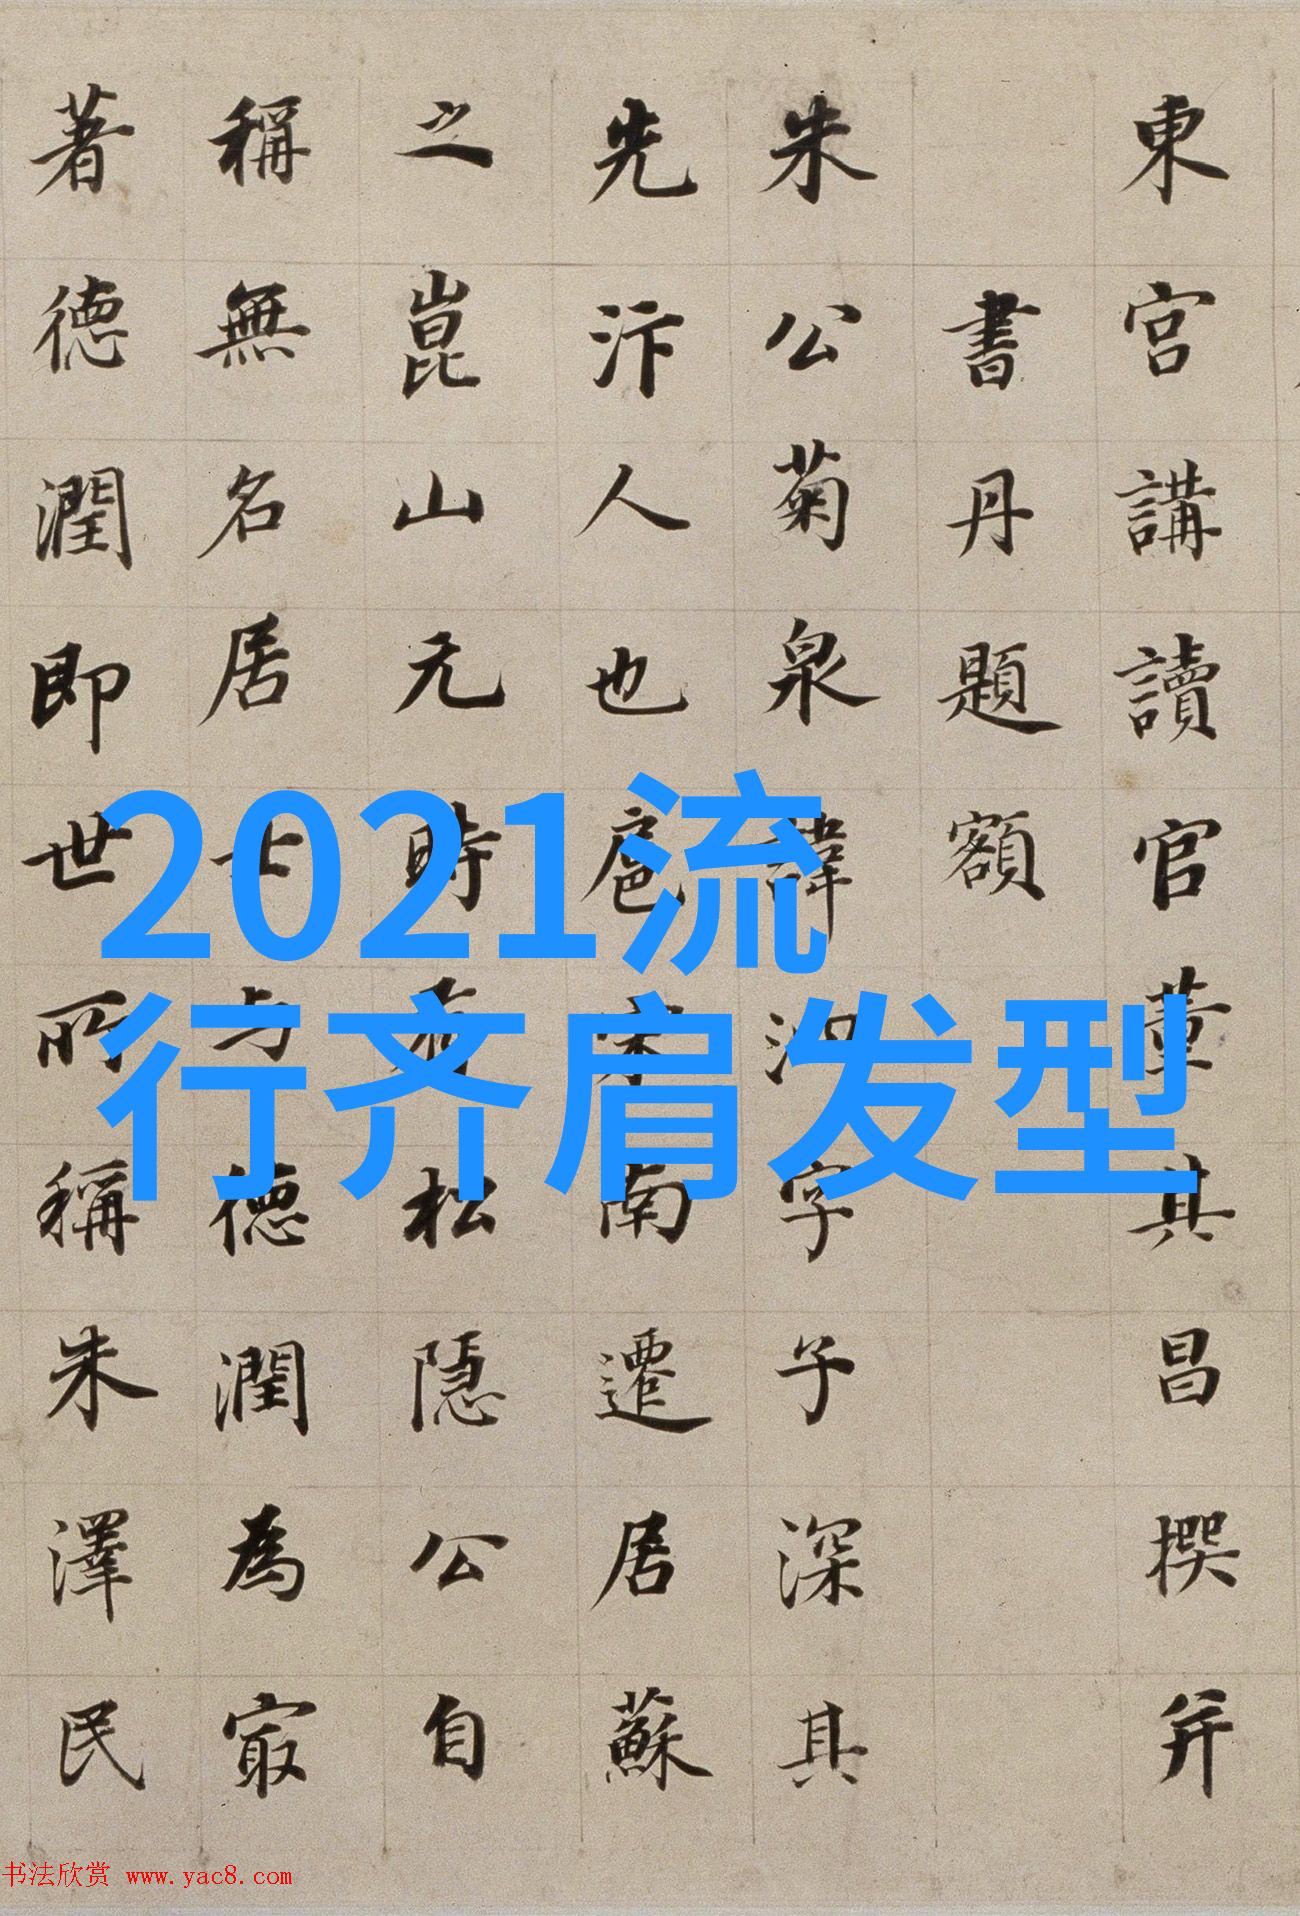 東宮講讀官董其昌撰并
書丹題額
朱公菊泉諱字子深其
先汴人也扈宋南遷居蘇
之崑山元時有松隱公自
稱無名居士与德潤為最
著德潤即世所稱朱澤民
2021流
行齐肩发型
书法欣赏 www.yac8.com